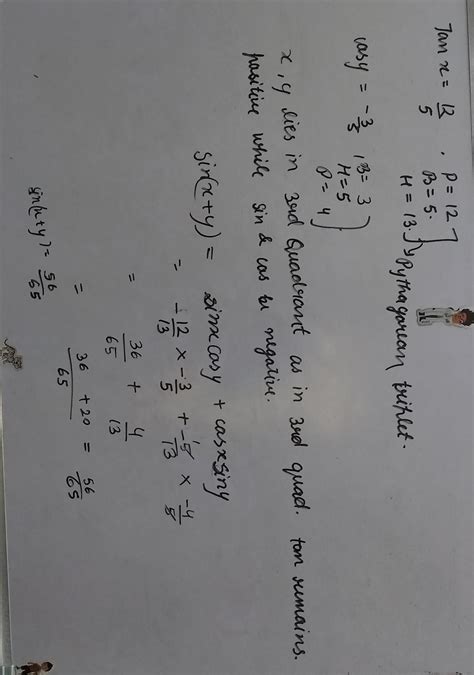 Tan x = 12/5 , P = 12
B = 5.
H = 13. } Pythagorean triplet.
cosy = -3/5 , B = 3
H = 5
P = 4 }
x, y lies in 3rd Quadrant as in 3rd quad. tan remains.
positive while sin & cos be negative.
sin(x+y) = sinxcosy + cosxsiny
= -12/13 × -3/5 + -5/13 × -4/5
= 36/65 + 4/13
= 36 + 20/65 = 56/65
sin(x+y) = 56/65